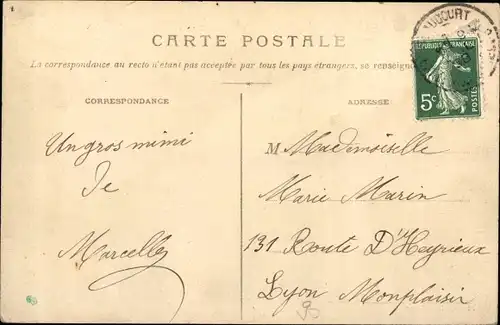 CARTE POSTALE
La correspondance au recto n'étant pas acceptée par tous les pays étrangers, se renseign
CORRESPONDANCE
ADRESSE
REPUBLIQUE FRANÇAISE
5c
POSTES
Un gros mimi
De
Marcelle
M Mademoiselle
Marie Marin
131 Route D'Heyrieux
Lyon Monplaisir